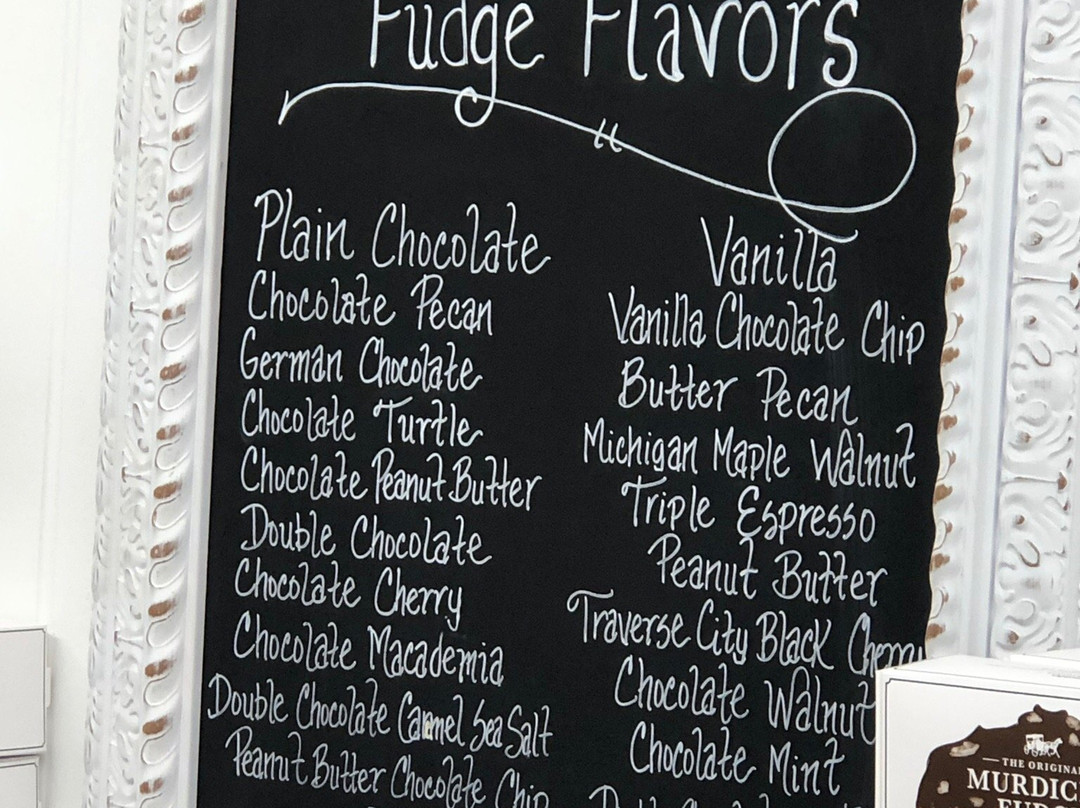 Fudge Flavors
Plain Chocolate
Chocolate Pecan
German Chocolate
Chocolate Turtle
Chocolate Peanut Butter
Double Chocolate
Chocolate Cherry
Chocolate Macademia
Double Chocolate Carmel Sea Salt
Peanut Butter Chocolate Chip
Vanilla
Vanilla Chocolate Chip
Butter Pecan
Michigan Maple Walnut
Triple Espresso
Peanut Butter
Traverse City Black Cherry
Chocolate Walnut
Chocolate Mint
THE ORIGINA
MURDIC